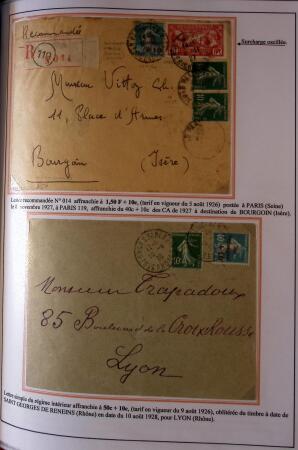 Surcharge oscillée.
Recommandée
R
Monsieur Vittoz
11, Place d'Armes
Bourgoin
(Isère)
Lettre recommandée N° 014 affranchie à 1,50 F + 10c, (tarif en vigueur du 5 août 1926) postée à PARIS (Seine)
le 8 novembre 1927, à PARIS 119, affranchie du 40c + 10c des CA de 1927 à destination de BOURGOIN (Isère).
Monsieur Trapadoux
85 Boulevard de la Croix Rousse
Lyon
Lettre simple du régime intérieur affranchie à 50c + 10c, (tarif en vigueur du 9 août 1926), oblitérée du timbre à date de
SAINT GEORGES DE RENEINS (Rhône) en date du 10 août 1928, pour LYON (Rhône).